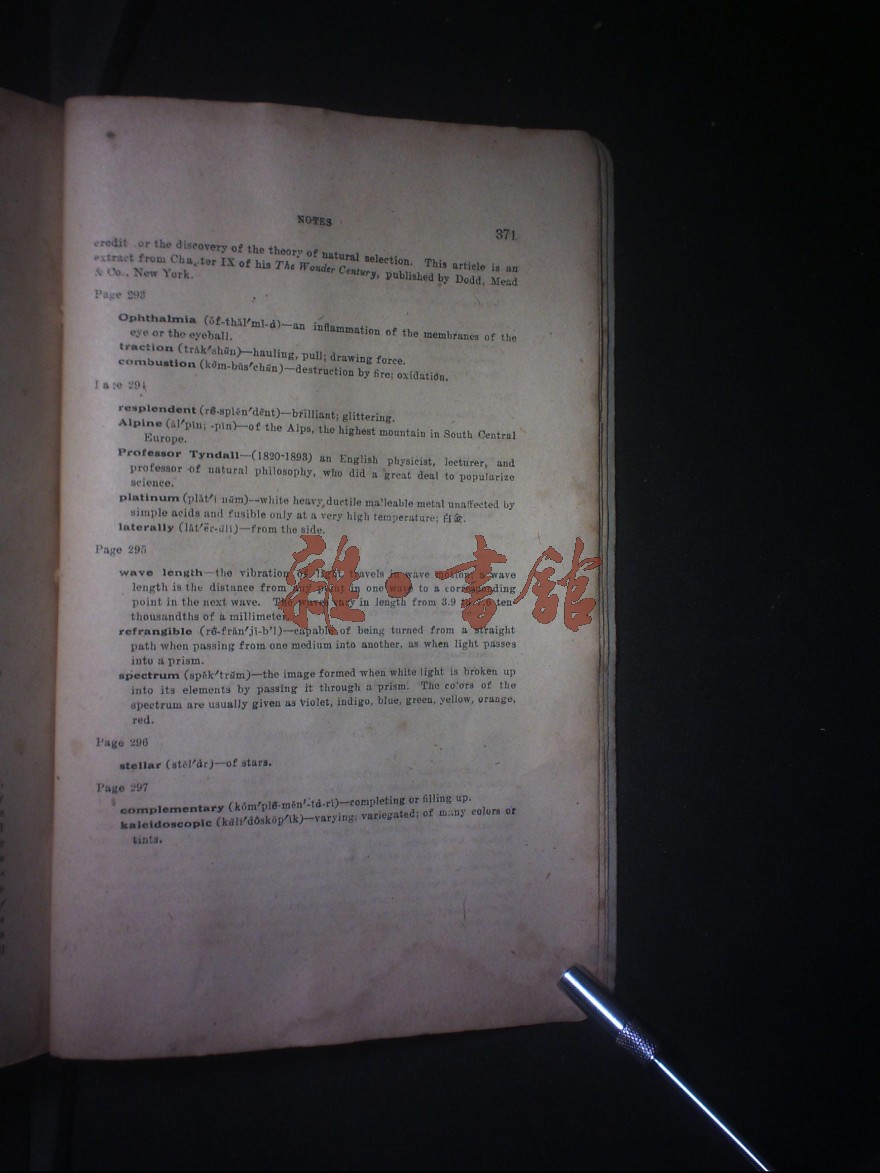 NOTES
371
credit or the discovery of the theory of natural selection. This article is an
extract from Cha ter IX of his The Wonder Century, published by Dodd, Mead
& Co., New York.
Page 293
Ophthalmia (ŏf-thăl′mĭ-ȧ)—an inflammation of the membranes of the
eye or the eyeball.
traction (trăk′shŭn)—hauling, pull; drawing force.
combustion (kŏm-bŭs′chŭn)—destruction by fire; oxidation.
Page 294
resplendent (rē-splĕn′dĕnt)—brilliant; glittering.
Alpine (ăl′pĭn; -pīn)—of the Alps, the highest mountain in South Central
Europe.
Professor Tyndall—(1820-1893) an English physicist, lecturer, and
professor of natural philosophy, who did a great deal to popularize
science.
platinum (plăt′ĭ nŭm)—white heavy ductile malleable metal unaffected by
simple acids and fusible only at a very high temperature; 白金.
laterally (lăt′ẽr-ălĭ)—from the side.
Page 295
wave length—the vibration of light travels in wave motion; a wave
length is the distance from any point in one wave to a corresponding
point in the next wave. The waves vary in length from 3.9 to 7.6 ten-
thousandths of a millimeter.
refrangible (rē-frăn′jĭ-b'l)—capable of being turned from a straight
path when passing from one medium into another, as when light passes
into a prism.
spectrum (spĕk′trŭm)—the image formed when white light is broken up
into its elements by passing it through a prism. The colors of the
spectrum are usually given as violet, indigo, blue, green, yellow, orange,
red.
Page 296
stellar (stĕl′ȧr)—of stars.
Page 297
complementary (kŏm′plē-mĕn′-tȧ-rĭ)—completing or filling up.
kaleidoscopic (kȧlī′dŏskŏp′ĭk)—varying; variegated; of many colors or
tints.
雜·書館